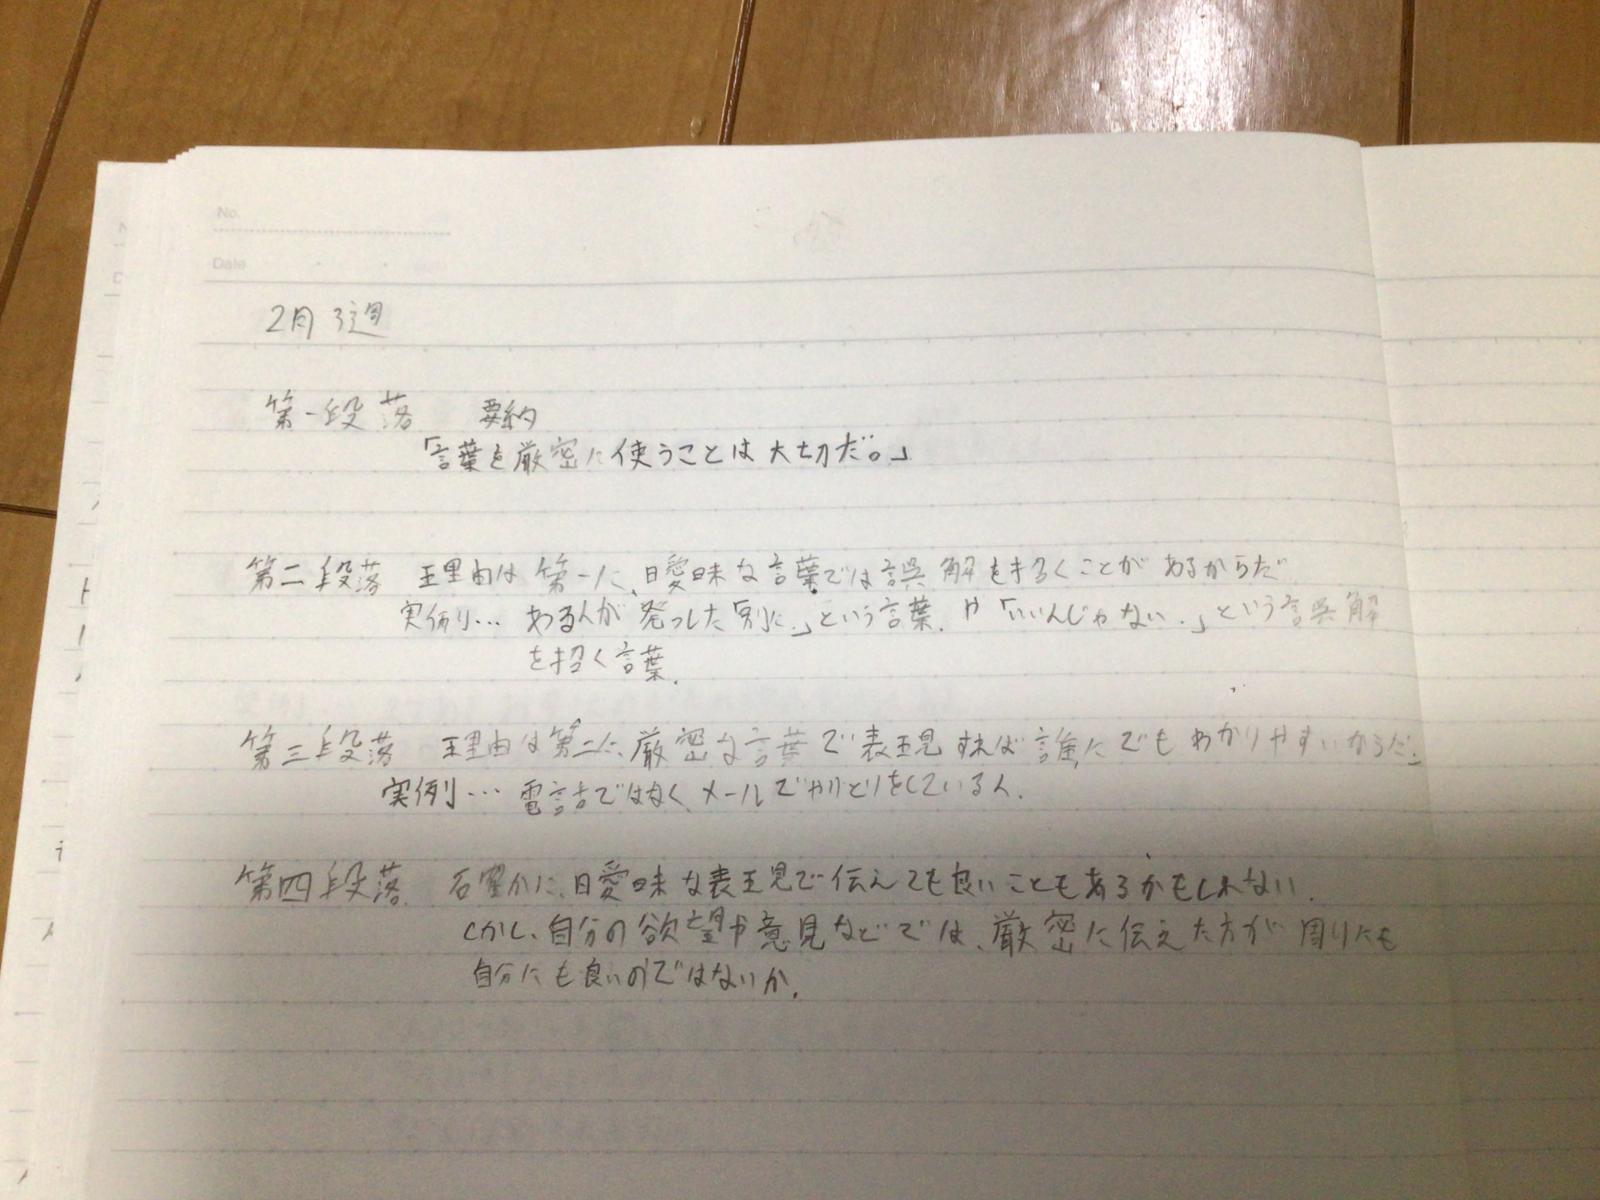 No.
Date
2月3週
第一段落 要約
「言葉を厳密に使うことは大切だ。」
第二段落 理由は第一に、曖昧な言葉では誤解をまねくことがあるからだ
実例… ある人が発っした「別に.」という言葉.や「いいんじゃない.」という誤解
を招く言葉.
第三段落 理由は第二に、厳密な言葉で表現すれば誰にでもわかりやすいからだ.
実例… 電話ではなく、メールでやりとりをしている人.
第四段落. 確かに、曖昧な表現で伝えても良いこともあるかもしれない.
しかし、自分の欲望や意見などでは、厳密に伝えた方が周りにも
自分にも良いのではないか.